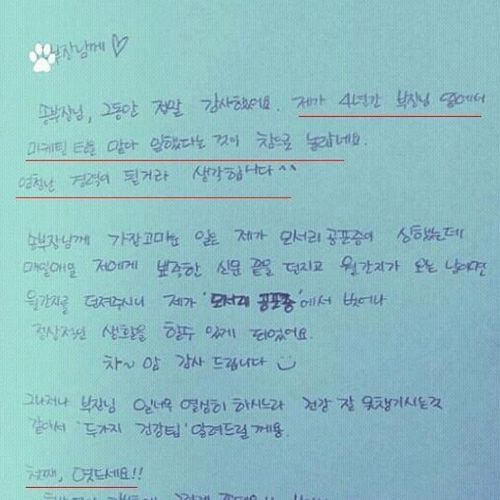 부장님께♡
송부장님, 그동안 정말 감사했어요. 제가 4년간 부장님 옆에서
마케팅 팀을 맡아 일했다는 것이 참으로 놀랍네요.
엄청난 경력이 될거라 생각합니다^^
송부장님께 가장고마운 일은 제가 모서리 공포증이 심했는데
매일매일 저에게 뾰족한 신문 끝을 던지고 월간지가 오는 날이면
월간지를 던져주시니 제가 '모서리 공포증'에서 벗어나
정상적인 생활을 할수 있게 되었어요.
차~암 감사 드립니다
그나저나 부장님 일너무 열심히 하시느라 건강 잘 못챙기시는것
같아서 '두가지 건강팁' 알려드릴게용.
첫째, 엿드세요!!